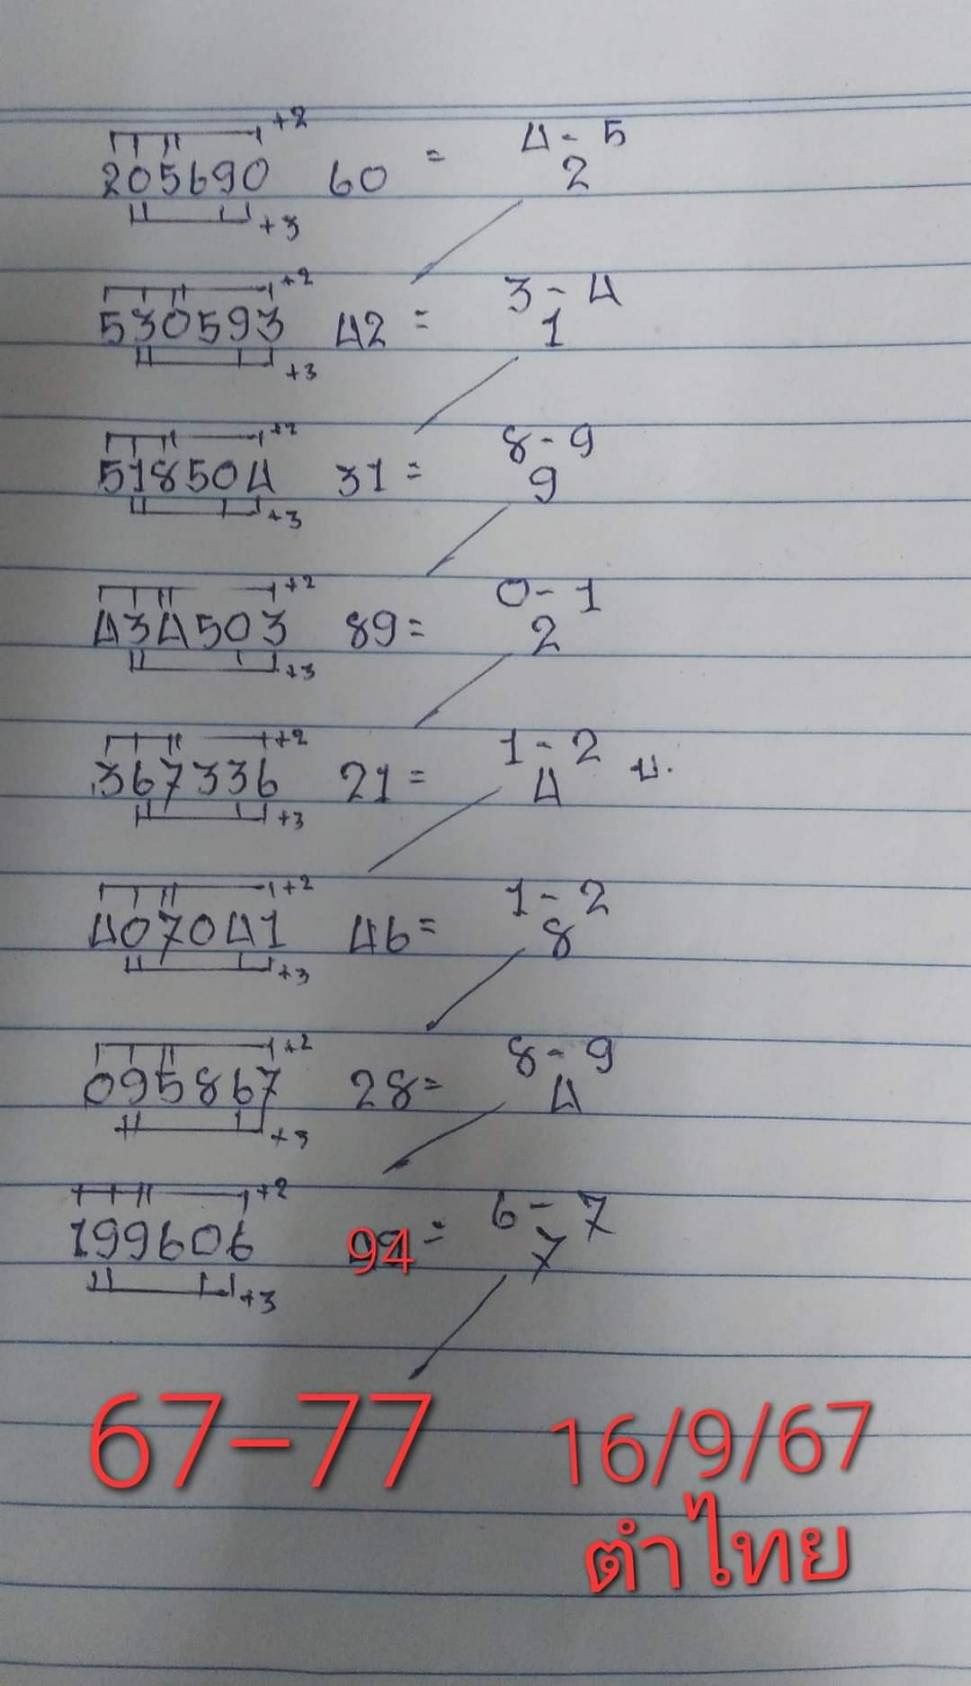 +2
205690 60 = 4-5
2
+3
+2
530593 42 = 3-4
1
+3
+2
518504 31= 8-9
9
+3
+2
434503 89= 0-1
2
+3
+2
367336 21= 1-2
4 บ.
+3
+2
407041 46= 1-2
8
+3
+2
095867 28= 8-9
4
+3
+2
199606 94= 6-7
7
+3
67-77 16/9/67
ตำไทย